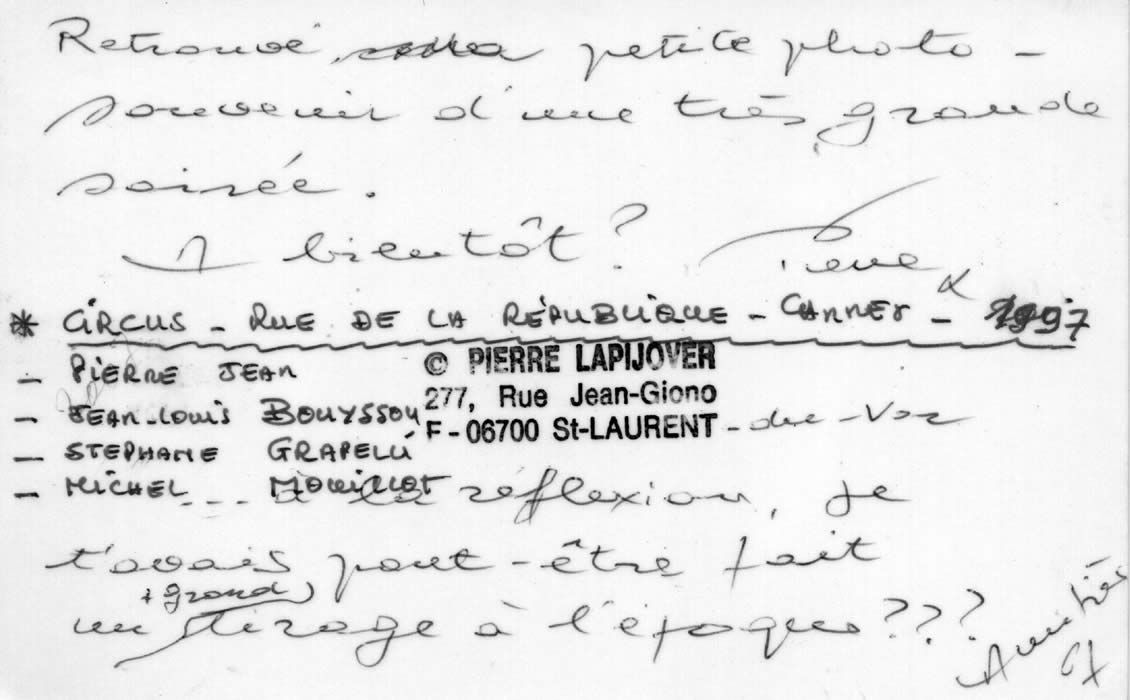 Retrouvé cette petite photo -
souvenir d'une très grande
soirée.
A bientôt ? Pierre
* CIRCUS - RUE DE LA RÉPUBLIQUE - CANNES - 1997
- PIERRE JEAN
- JEAN-LOUIS BOUYSSOU
- STEPHANE GRAPELLI
- MICHEL MOUILLOT
© PIERRE LAPIJOVER
277, Rue Jean-Giono
F - 06700 St-LAURENT - du - Var
... à la réflexion, je
t'avais peut-être fait
+ grand
un tirage à l'époque ???
Amitiés